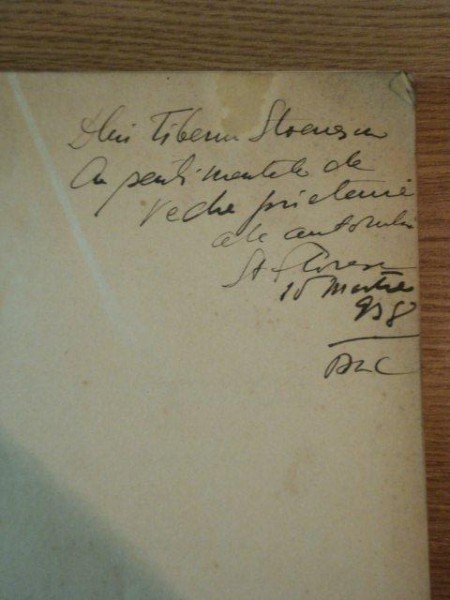 Dlui Tiberiu Stoenescu
Cu sentimentele de
veche prietenie
ale autorului
St
10 Martie
938
Buc